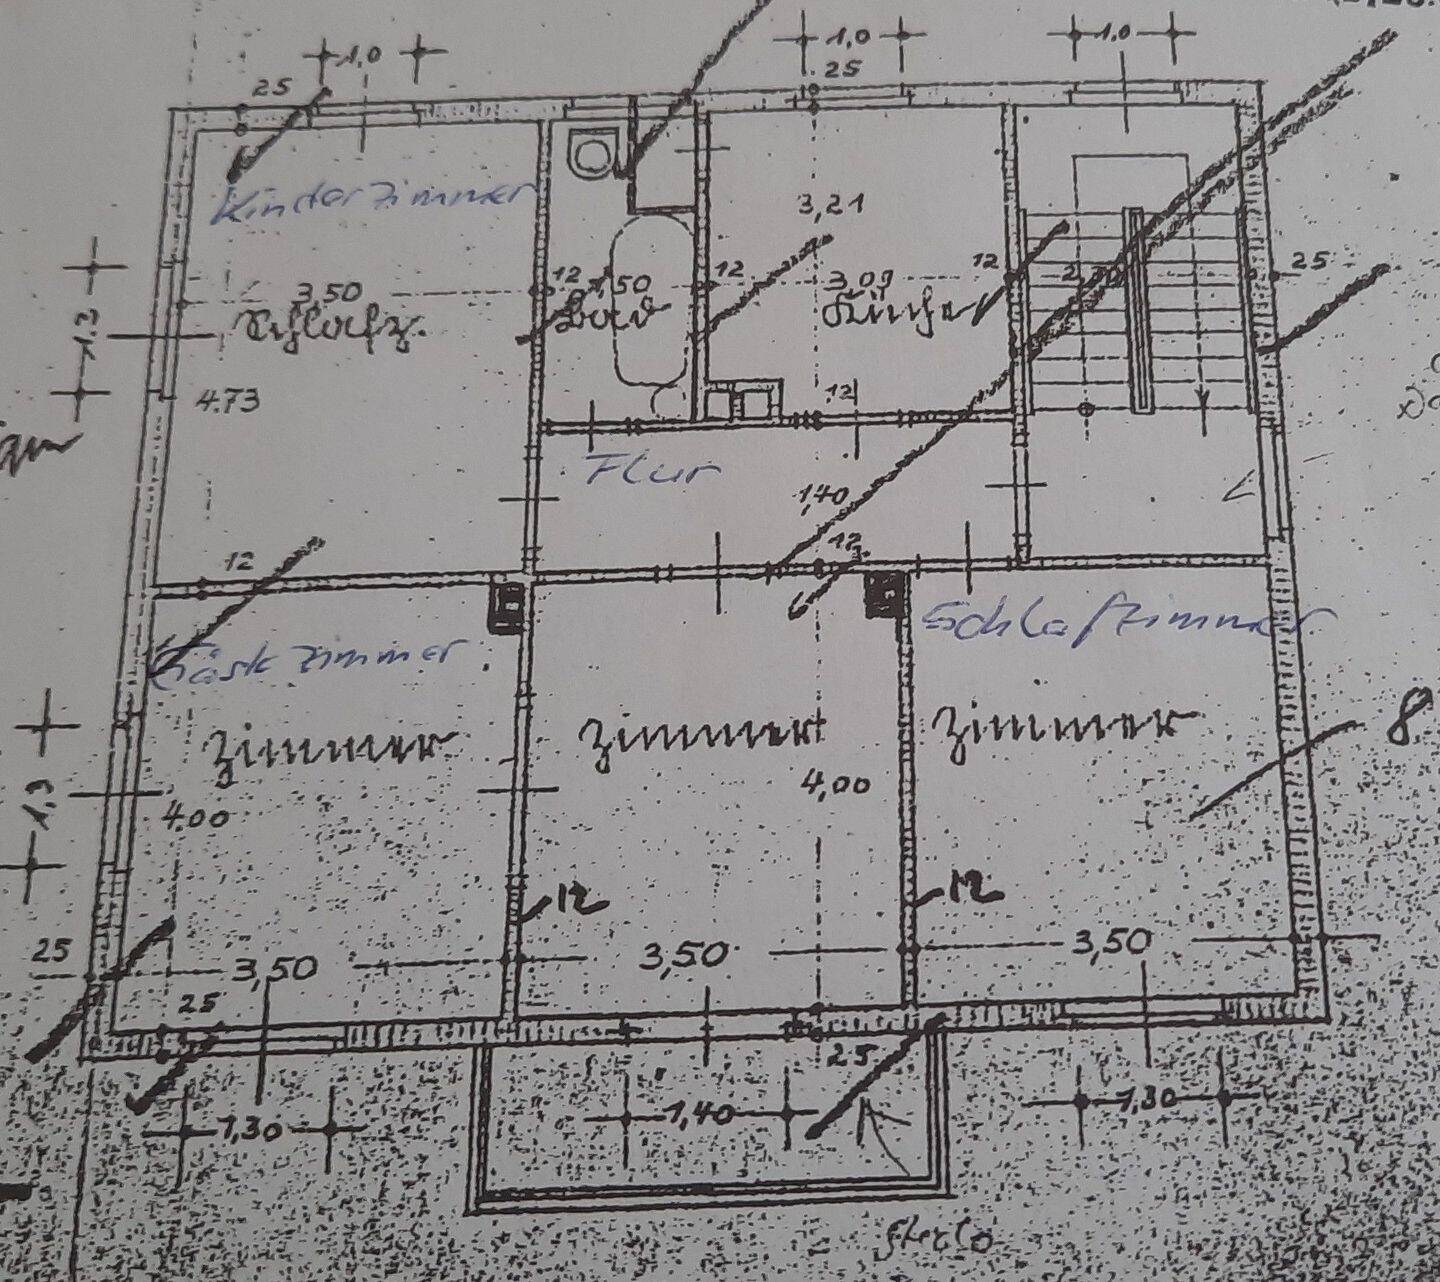 1,0
1,0
1,0
25
25
Kinderzimmer
3,21
12
1,50
12
3,09
12
2,30
25
3,50
Schlafz.
Bad
Küche
1.2
4.73
12
Flur
1,40
12
12
Gästezimmer
Schlafzimmer
Zimmer
Zimmer
Zimmer
8
1,3
4.00
4,00
12
12
25
3,50
3,50
3,50
25
25
1,30
1,40
1,30